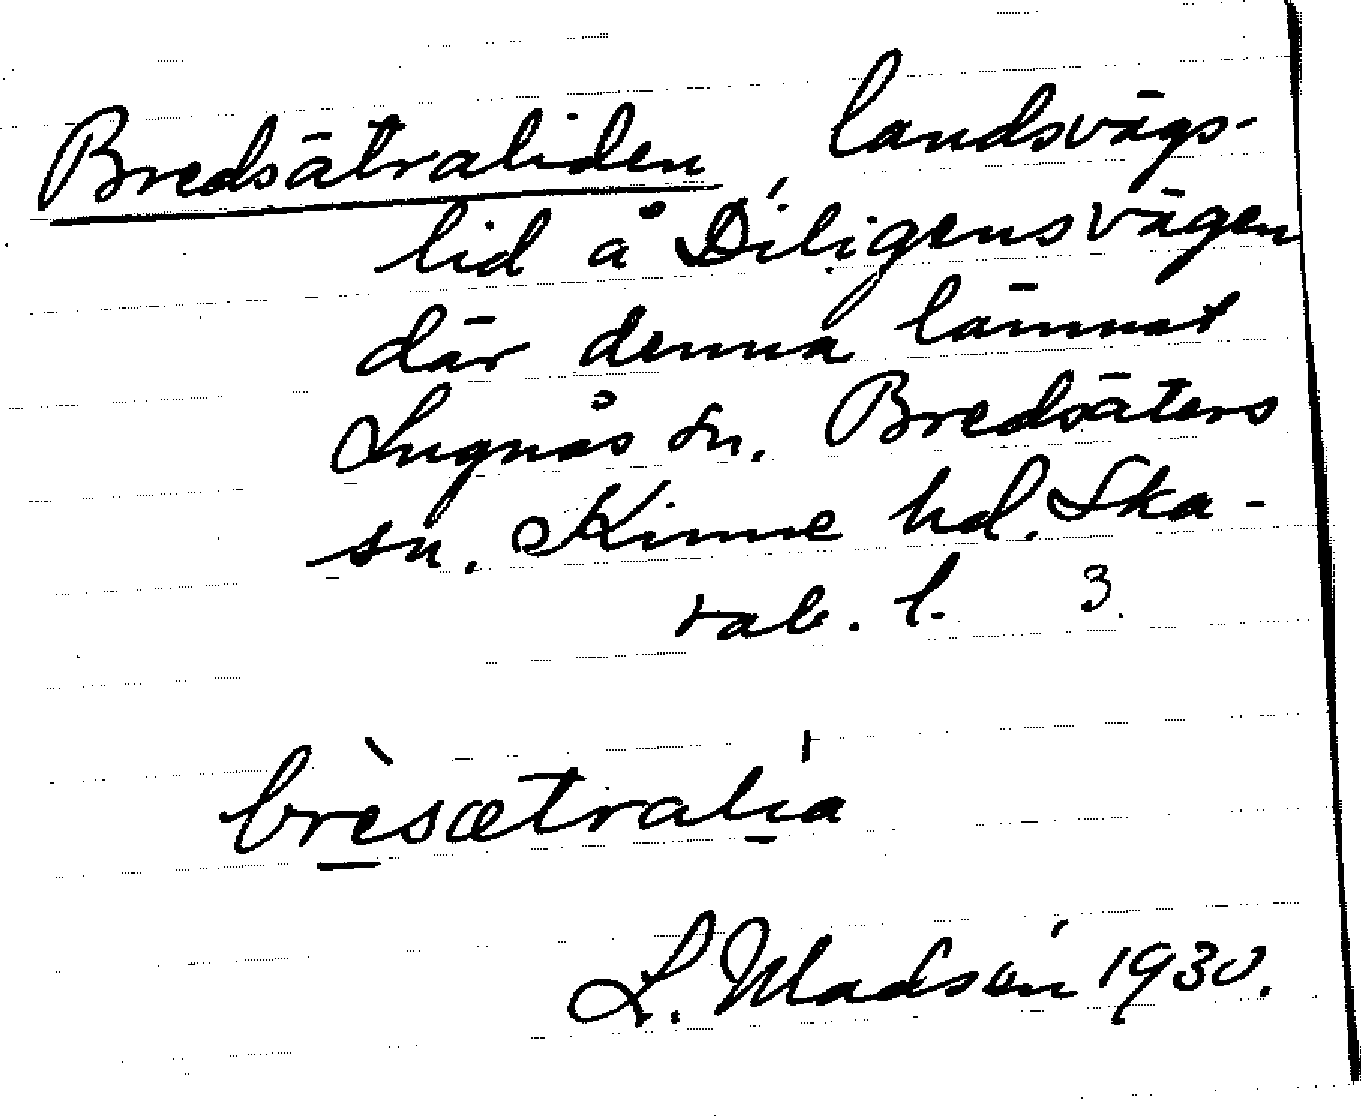 Bredsätraliden landsvägs-
lid å Diligensvägen
där denna lämnat
Lugnås sn. Bredsäters
sn. Kinne hd. Ska-
rab. l. 3.
brèsætralia
L. Madsén 1930.